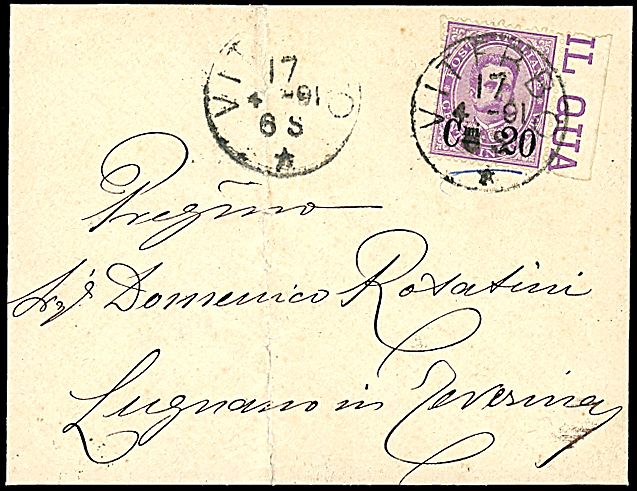 VITERBO
17
4 -91
6 S
VITERBO
17
4 -91
POSTE
Cmi 20
IL QUA
Pregmo
Sigr Domenico Rosatini
Lugnano in Teverina